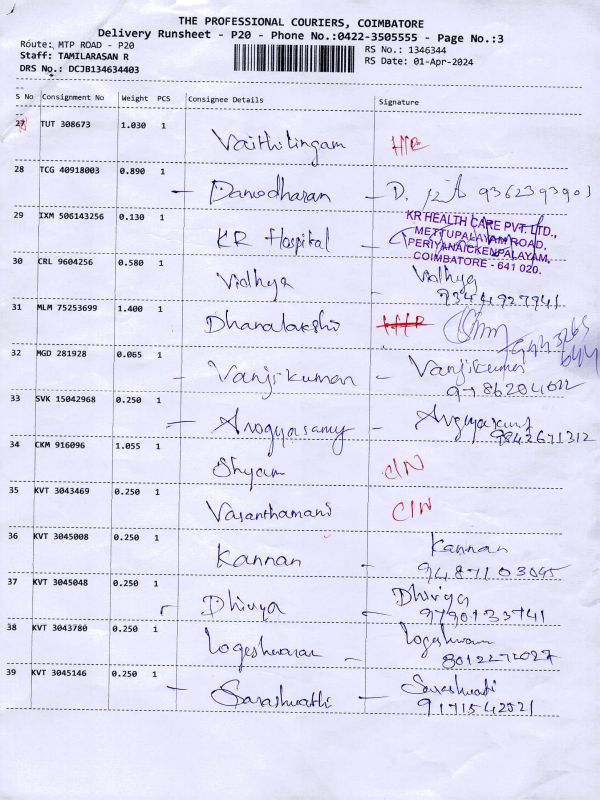 THE PROFESSIONAL COURIERS, COIMBATORE
Delivery Runsheet - P20 - Phone No.:0422-3505555 - Page No.:3
Route: MTP ROAD - P20 RS No.: 1346344
Staff: TAMILARASAN R RS Date: 01-Apr-2024
DRS No.: DCJB134634403
S No Consignment No Weight PCS Consignee Details Signature
27 TUT 308673 1.030 1 Vaithilingam
28 TCG 40918003 0.890 1 Damodharan D. 9362393903
29 IXM 506143256 0.130 1 KR Hospital
KR HEALTH CARE PVT. LTD.,
METTUPALAYAM ROAD,
PERIYANAICKENPALAYAM,
COIMBATORE - 641 020.
30 CRL 9604256 0.580 1 Vidhya Vidhya
9344927941
31 MLM 75253699 1.400 1 Dhanalakshi
32 MGD 281928 0.065 1 Vanjikumar Vanjikumar
33 SVK 15042968 0.250 1 Arogyasamy
9842671312
34 CKM 916096 1.055 1 Shyam CIN
35 KVT 3043469 0.250 1 Vasanthamani CIN
36 KVT 3045008 0.250 1 Kannan Kannan
9487103045
37 KVT 3045048 0.250 1 Dhivya Dhivya
9790133741
38 KVT 3043780 0.250 1 Logeshwaran
8012272027
39 KVT 3045146 0.250 1 Sarashwathi Sarashwathi
9171542021